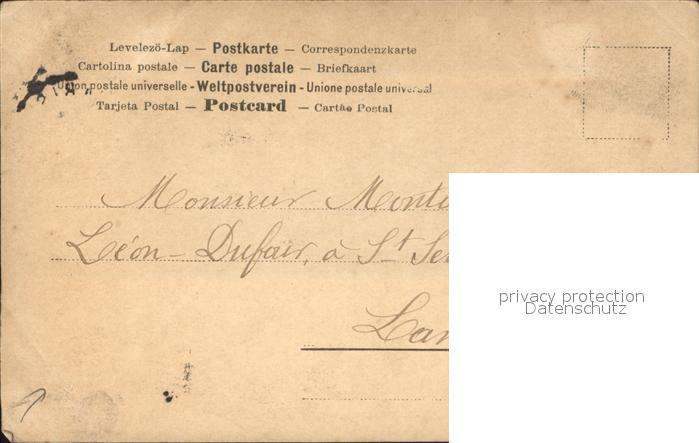 Levelezö-Lap — Postkarte — Correspondenzkarte
Cartolina postale — Carte postale — Briefkaart
Union postale universelle - Weltpostverein - Unione postale universal
Tarjeta Postal — Postcard — Cartão Postal
Monsieur Monti
Léon-Dufair, à St Se
Lan
privacy protection
Datenschutz